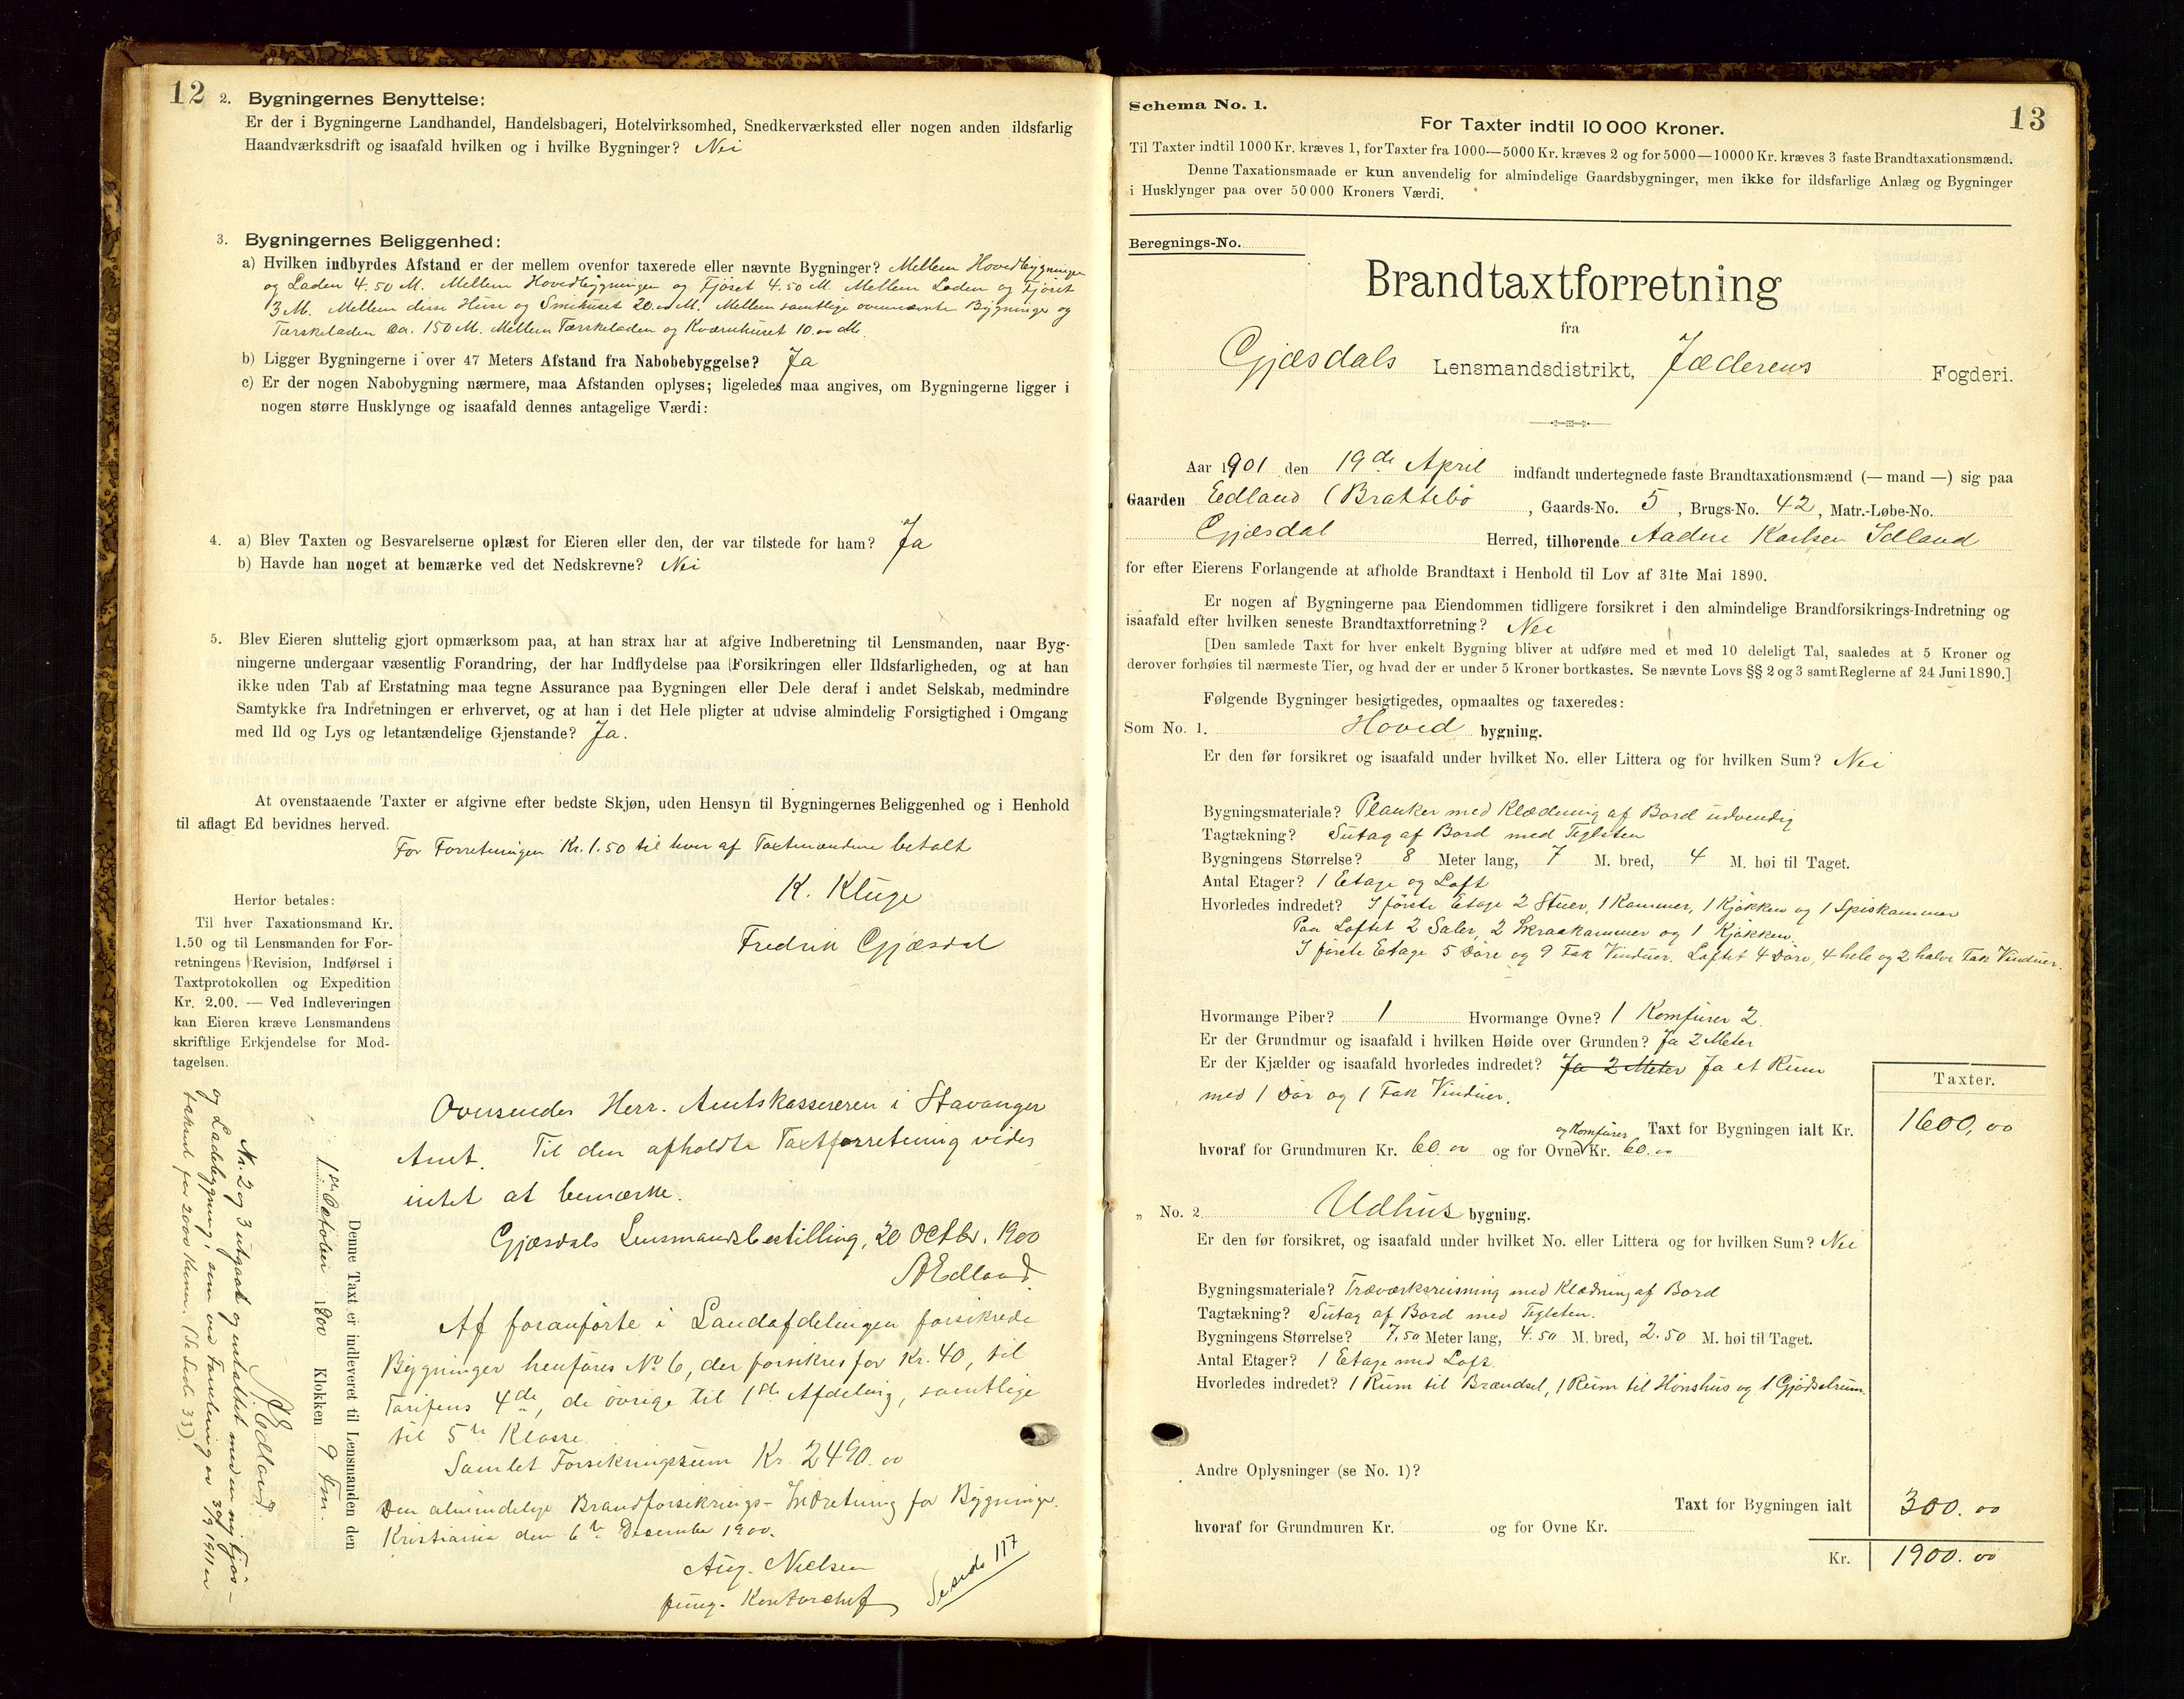 12
2. Bygningernes Benyttelse:
Er der i Bygningerne Landhandel, Handelsbageri, Hotelvirksomhed, Snedkerværksted eller nogen anden ildsfarlig
Haandværksdrift og isaafald hvilken og i hvilke Bygninger? Nei
3. Bygningernes Beliggenhed:
a) Hvilken indbyrdes Afstand er der mellem ovenfor taxerede eller nævnte Bygninger? Mellem Hovedbygningen
og Laden 4.50 M. Mellem Hovedbygningen og Fjöset 4.50 M. Mellem Laden og Fjöset
3 M. Mellem disse Huse og Smihuset 20.00 M. Mellem samtlige ovennævnte Bygninger og
Tærskeladen ca. 150 M. Mellem Tærskeladen og Kværnhuset 10.00 M.
b) Ligger Bygningerne i over 47 Meters Afstand fra Nabobebyggelse? Ja
c) Er der nogen Nabobygning nærmere, maa Afstanden oplyses; ligeledes maa angives, om Bygningerne ligger i
nogen større Husklynge og isaafald dennes antagelige Værdi:
4. a) Blev Taxten og Besvarelserne oplæst for Eieren eller den, der var tilstede for ham? Ja
b) Havde han noget at bemærke ved det Nedskrevne? Nei
5. Blev Eieren sluttelig gjort opmærksom paa, at han strax har at afgive Indberetning til Lensmanden, naar Byg-
ningerne undergaar væsentlig Forandring, der har Indflydelse paa Forsikringen eller Ildsfarligheden, og at han
ikke uden Tab af Erstatning maa tegne Assurance paa Bygningen eller Dele deraf i andet Selskab, medmindre
Samtykke fra Indretningen er erhvervet, og at han i det Hele pligter at udvise almindelig Forsigtighed i Omgang
med Ild og Lys og letantændelige Gjenstande? Ja.
At ovenstaaende Taxter er afgivne efter bedste Skjøn, uden Hensyn til Bygningernes Beliggenhed og i Henhold
til aflagt Ed bevidnes herved.
For Forretningen Kr. 1.50 til hver af Taxtmændene betalt
K. Kluge
Fredrik Gjæsdal
Herfor betales:
Til hver Taxationsmand Kr.
1.50 og til Lensmanden for For-
retningens Revision, Indførsel i
Taxtprotokollen og Expedition
Kr. 2.00. — Ved Indleveringen
kan Eieren kræve Lensmandens
skriftlige Erkjendelse for Mod-
tagelsen.
Denne Taxt er indleveret til Lensmanden den
1ste October 1900 Klokken 9 Fm.
Nr. 2 og 3 utgaat og erstattet med en ny Fjös-
og Ladebygning, som ved Forretning av 30/9 1911 er
taksert for 2000 Kroner. (Se Side 33).
Oversendes Herr. Amtskassereren i Stavanger
Amt. Til den afholdte Taxtforretning vides
intet at bemærke.
Gjæsdals Lensmandsbestilling, 20 Octbr. 1900
Af foranførte i Landafdelingen forsikrede
Bygninger henføres No 6, der forsikres for Kr. 40, til
Tarifens 4de, de övrige til 1ste Afdeling, samtlige
til 5te Klasse.
Samlet Forsikringssum Kr. 2490.00
Den almindelige Brandforsikrings-Indretning for Bygninger.
Kristiania den 6te December 1900.
Aug. Nielsen
fung. Kontorchef
Se side 117
13
Schema No. 1.
For Taxter indtil 10 000 Kroner.
Til Taxter indtil 1000 Kr. kræves 1, for Taxter fra 1000—5000 Kr. kræves 2 og for 5000—10000 Kr. kræves 3 faste Brandtaxationsmænd.
Denne Taxationsmaade er kun anvendelig for almindelige Gaardsbygninger, men ikke for ildsfarlige Anlæg og Bygninger
i Husklynger paa over 50 000 Kroners Værdi.
Beregnings-No.
Brandtaxtforretning
fra
Gjæsdals Lensmandsdistrikt, Jæderens Fogderi.
Aar 1901 den 19de April indfandt undertegnede faste Brandtaxationsmænd (— mand —) sig paa
Gaarden Edland (Brattebö, Gaards-No. 5, Brugs-No. 42, Matr.-Løbe-No.
Gjæsdal Herred, tilhørende Aadne Karlsen Idland
for efter Eierens Forlangende at afholde Brandtaxt i Henhold til Lov af 31te Mai 1890.
Er nogen af Bygningerne paa Eiendommen tidligere forsikret i den almindelige Brandforsikrings-Indretning og
isaafald efter hvilken seneste Brandtaxtforretning? Nei
[Den samlede Taxt for hver enkelt Bygning bliver at udføre med et med 10 deleligt Tal, saaledes at 5 Kroner og
derover forhøies til nærmeste Tier, og hvad der er under 5 Kroner bortkastes. Se nævnte Lovs §§ 2 og 3 samt Reglerne af 24 Juni 1890.]
Følgende Bygninger besigtigedes, opmaaltes og taxeredes:
Som No. 1. Hoved bygning.
Er den før forsikret og isaafald under hvilket No. eller Littera og for hvilken Sum? Nei
Bygningsmateriale? Planker med Klædning af Bord udvendig
Tagtækning? Sutag af Bord med Teglsten
Bygningens Størrelse? 8 Meter lang, 7 M. bred, 4 M. høi til Taget.
Antal Etager? 1 Etage og Loft
Hvorledes indredet? I förste Etage 2 Stuer, 1 Kammer, 1 Kjøkken og 1 Spiskammer
Paa Loftet 2 Saler, 2 Skraakammer og 1 Kjøkken.
I förste Etage 5 Döre og 9 Fak Vinduer. Loftet 4 Döre, 4 hele og 2 halve Fak Vinduer.
Hvormange Piber? 1 Hvormange Ovne? 1 Komfurer 2.
Er der Grundmur og isaafald i hvilken Høide over Grunden? Ja 2 Meter
Er der Kjælder og isaafald hvorledes indredet? Ja 2 Meter Ja et Rum
med 1 Dör og 1 Fak Vinduer.
Taxter.
Taxt for Bygningen ialt Kr. 1600,00
hvoraf for Grundmuren Kr. 60.00 og for Ovne og Komfurer Kr. 60.00
„ No. 2 Udhus bygning.
Er den før forsikret, og isaafald under hvilket No. eller Littera og for hvilken Sum? Nei
Bygningsmateriale? Træværksreisning med Klædning af Bord
Tagtækning? Sutag af Bord med Teglsten.
Bygningens Størrelse? 7.50 Meter lang, 4.50 M. bred, 2.50 M. høi til Taget.
Antal Etager? 1 Etage med Loft.
Hvorledes indredet? 1 Rum til Brændsel, 1 Rum til Hönshus og 1 Gjödselrum.
Andre Oplysninger (se No. 1)?
Taxt for Bygningen ialt 300.00
hvoraf for Grundmuren Kr. og for Ovne Kr.
Kr. 1900.00